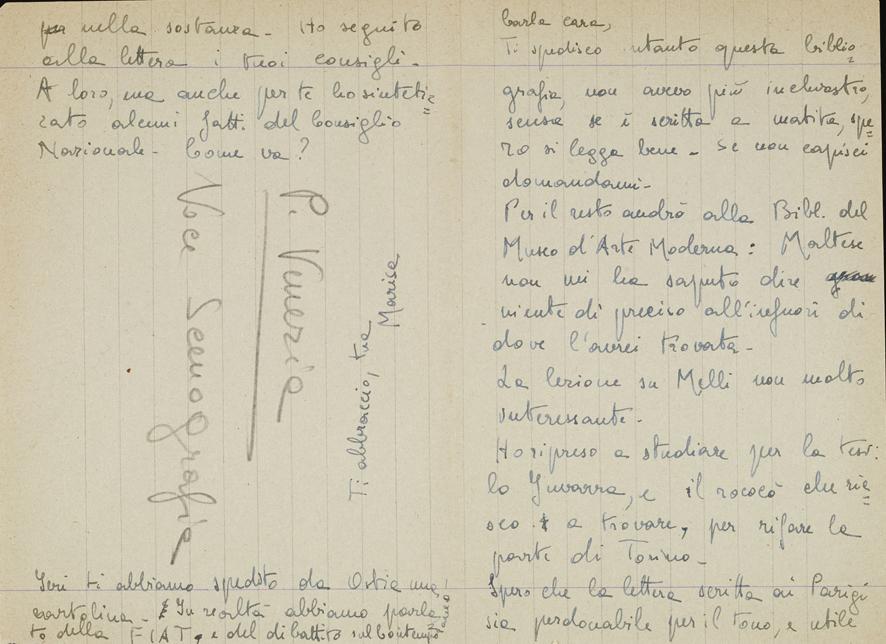 Carla cara,
Ti spedisco intanto questa biblio=
grafia, non avevo più inchiostro,
scusa se è scritta a matita, spe=
ro si legga bene - Se non capisci
domandami -
Per il resto andrò alla Bibl. del
Museo d'Arte Moderna: Maltese
non mi ha saputo dire
niente di preciso all'infuori di
dove l'avrei trovata -
La lezione su Melli non molto
interessante.
Ho ripreso a studiare per la tesi:
lo Juvarra, e il rococò che rie=
sco a trovare, per rifare la
parte di Torino -
Spero che la lettera scritta ai Parigi
sia perdonabile per il tono, e utile
nella sostanza - Ho seguito
alla lettera i tuoi consigli -
A loro, ma anche per te ho sintetiz=
zato alcuni fatti del Consiglio
Nazionale - Come va?
Ti abbraccio, tua
Marisa
P. Venezia
Voce Scenografia
Ieri ti abbiamo spedito da Ostia una
cartolina - In realtà abbiamo parla=
to della FIAT, e del dibattito sul Contempo